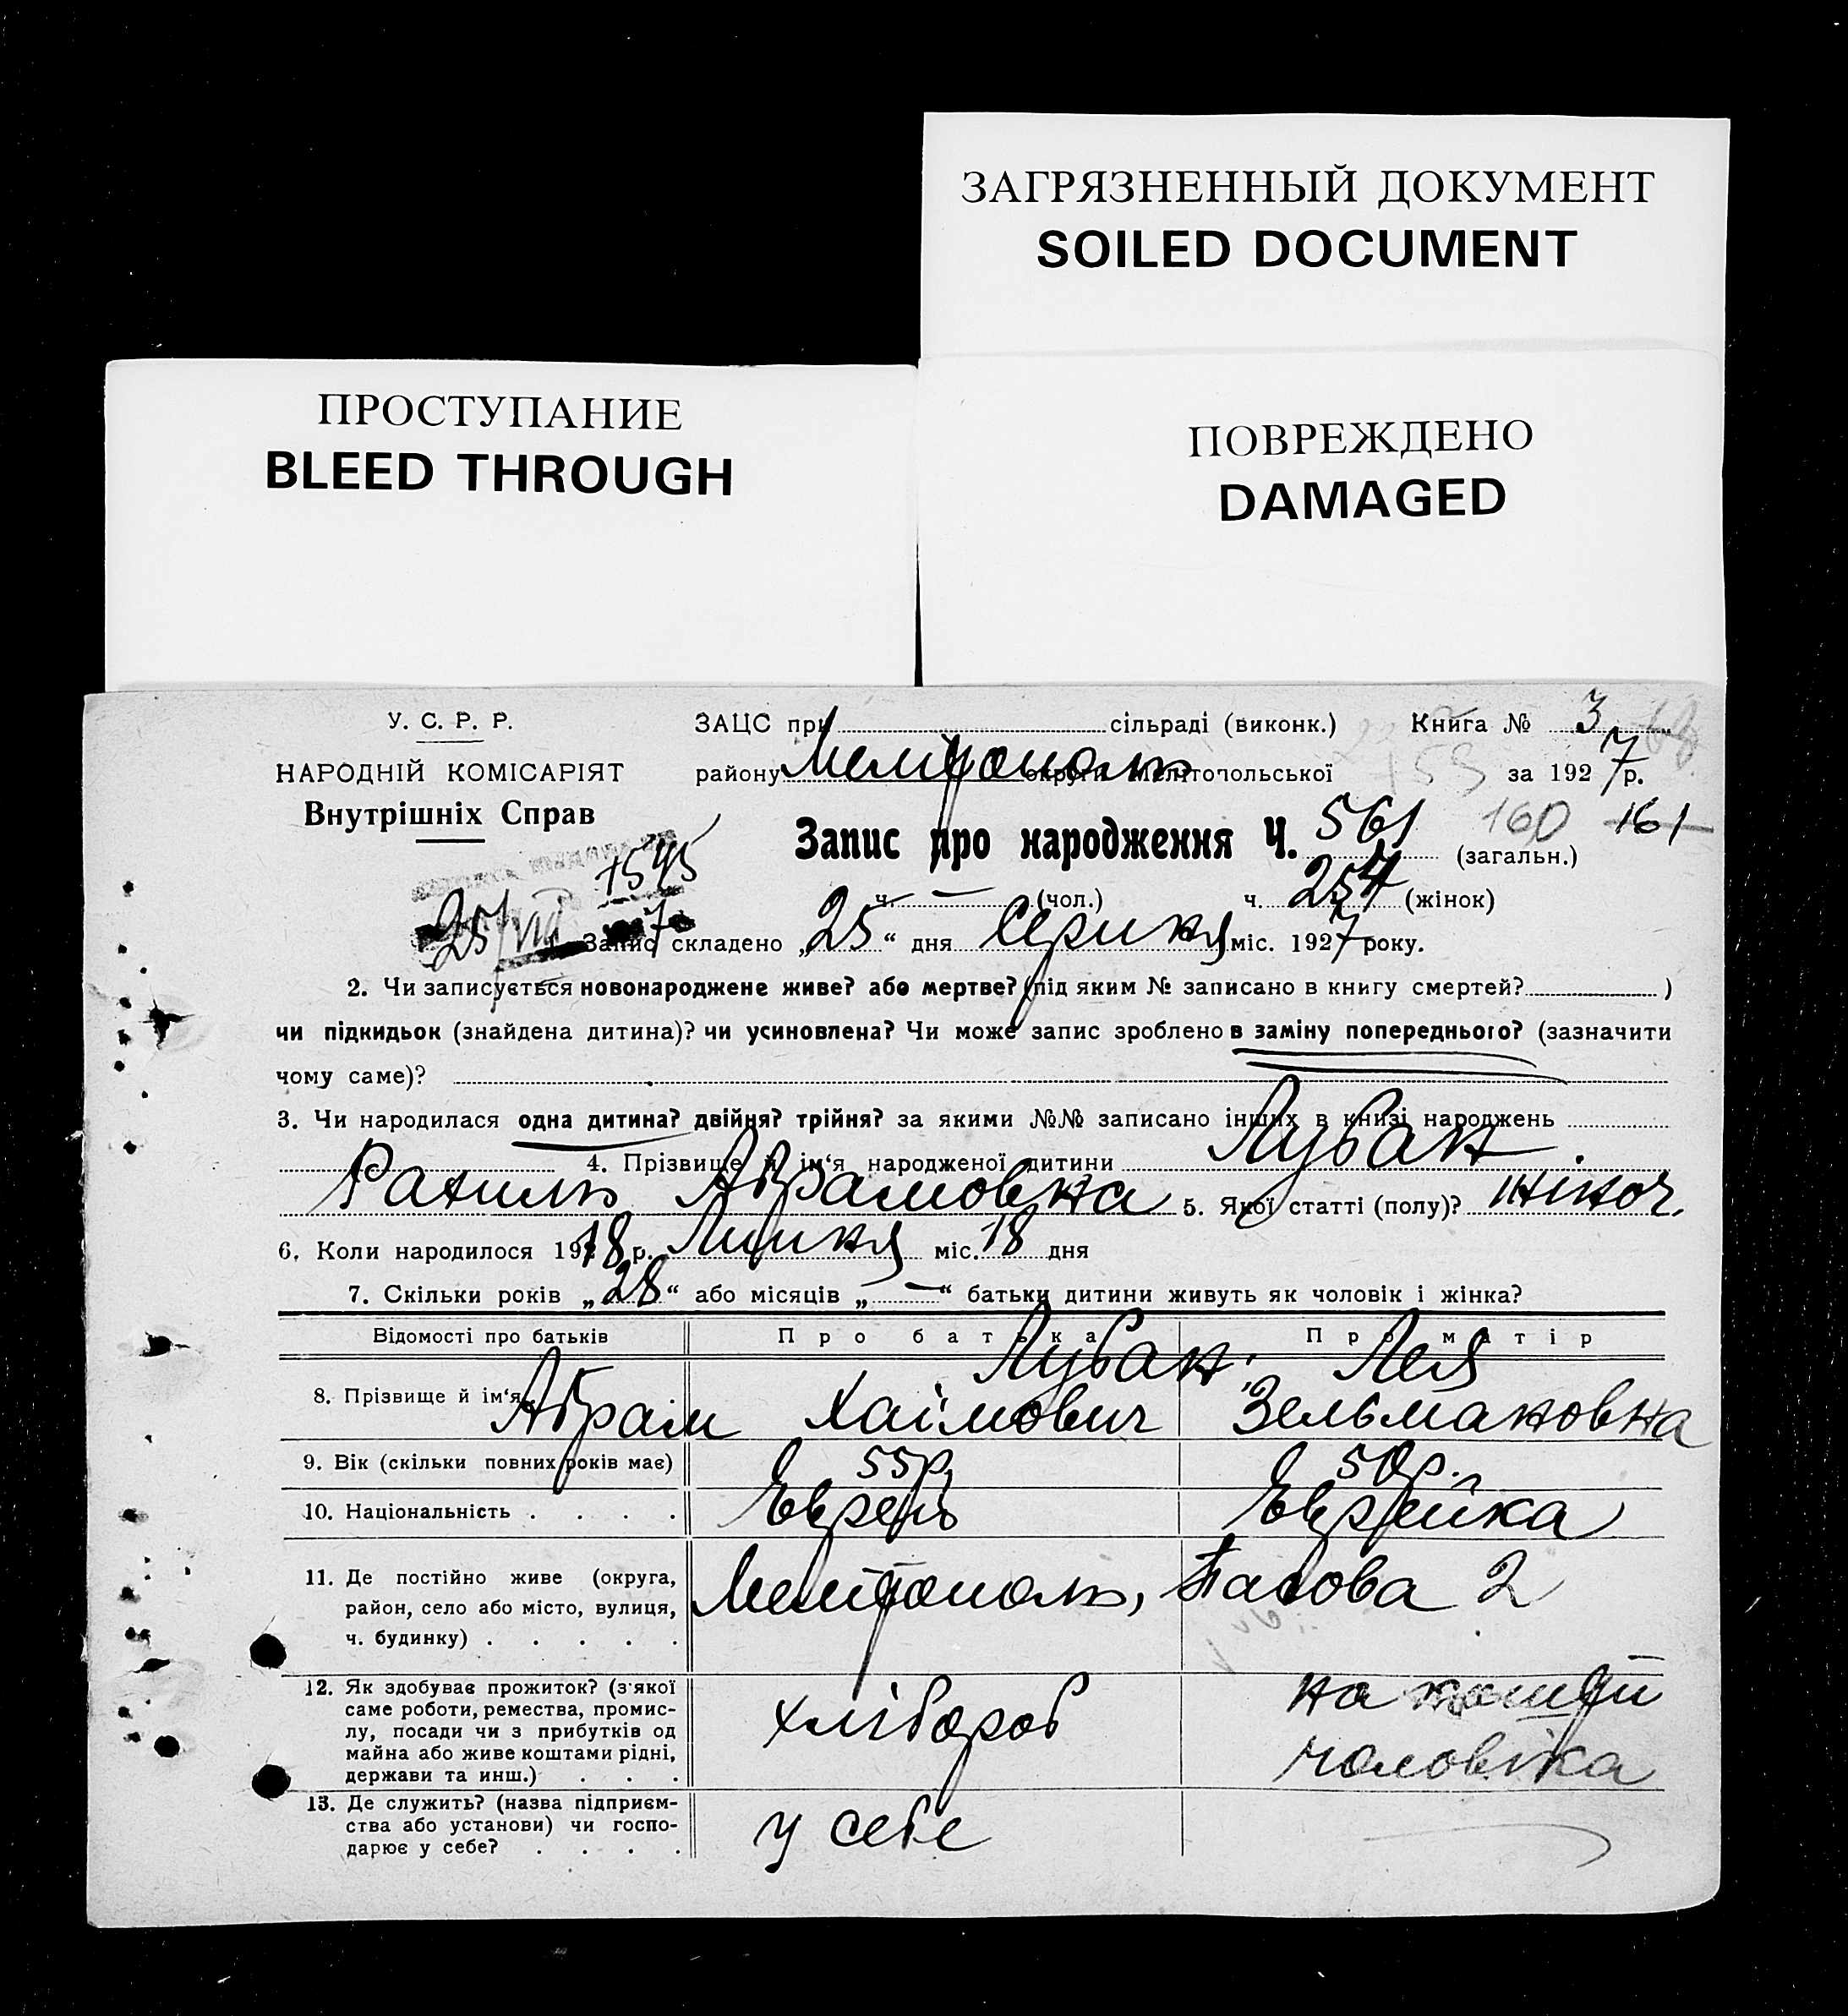 ЗАГРЯЗНЕННЫЙ ДОКУМЕНТ
SOILED DOCUMENT
ПРОСТУПАНИЕ
BLEED THROUGH
ПОВРЕЖДЕНО
DAMAGED
У. С. Р. Р.
НАРОДНІЙ КОМІСАРІЯТ
Внутрішніх Справ
ЗАЦС при сільраді (виконк.) Книга № 3
району Мелітополь округи Мелітопольської за 1927 р.
Запис про народження Ч. 561 (загальн.) 160 161
1545
ч. — (чол.) ч. 254 (жінок)
25/VIII 7
Запис складено „25“ дня Серпня міс. 1927 року.
2. Чи записується новонароджене живе? або мертве? (під яким № записано в книгу смертей? )
чи підкидьок (знайдена дитина)? чи усиновлена? Чи може запис зроблено в заміну попереднього? (зазначити
чому саме)?
3. Чи народилася одна дитина? двійня? трійня? за якими №№ записано інших в книзі народжень
4. Прізвище й ім‘я народженої дитини Лубан.
Рахиль Абрамовна 5. Якої статті (полу)? жіноч.
6. Коли народилося 1918 р. Липня міс. 18 дня
7. Скільки років „28“ або місяців „—“ батьки дитини живуть як чоловік і жінка?
Відомості про батьків Про батька Про матір
8. Прізвище й ім‘я Лубан. Лея
Абрам Хаімович Зельмановна
9. Вік (скільки повних років має) 55р. 50р.
10. Національність . . . . Еврей Еврейка
11. Де постійно живе (округа,
район, село або місто, вулиця,
ч. будинку) . . . . .
Мелітополь, 2
12. Як здобуває прожиток? (з'якої
саме роботи, ремества, промис-
лу, посади чи з прибутків од
майна або живе коштами рідні,
держави та инш.) . . .
хлібороб
на кошти
чоловіка
13. Де служить? (назва підприєм-
ства або установи) чи госпо-
дарює у себе? . . . .
у себе